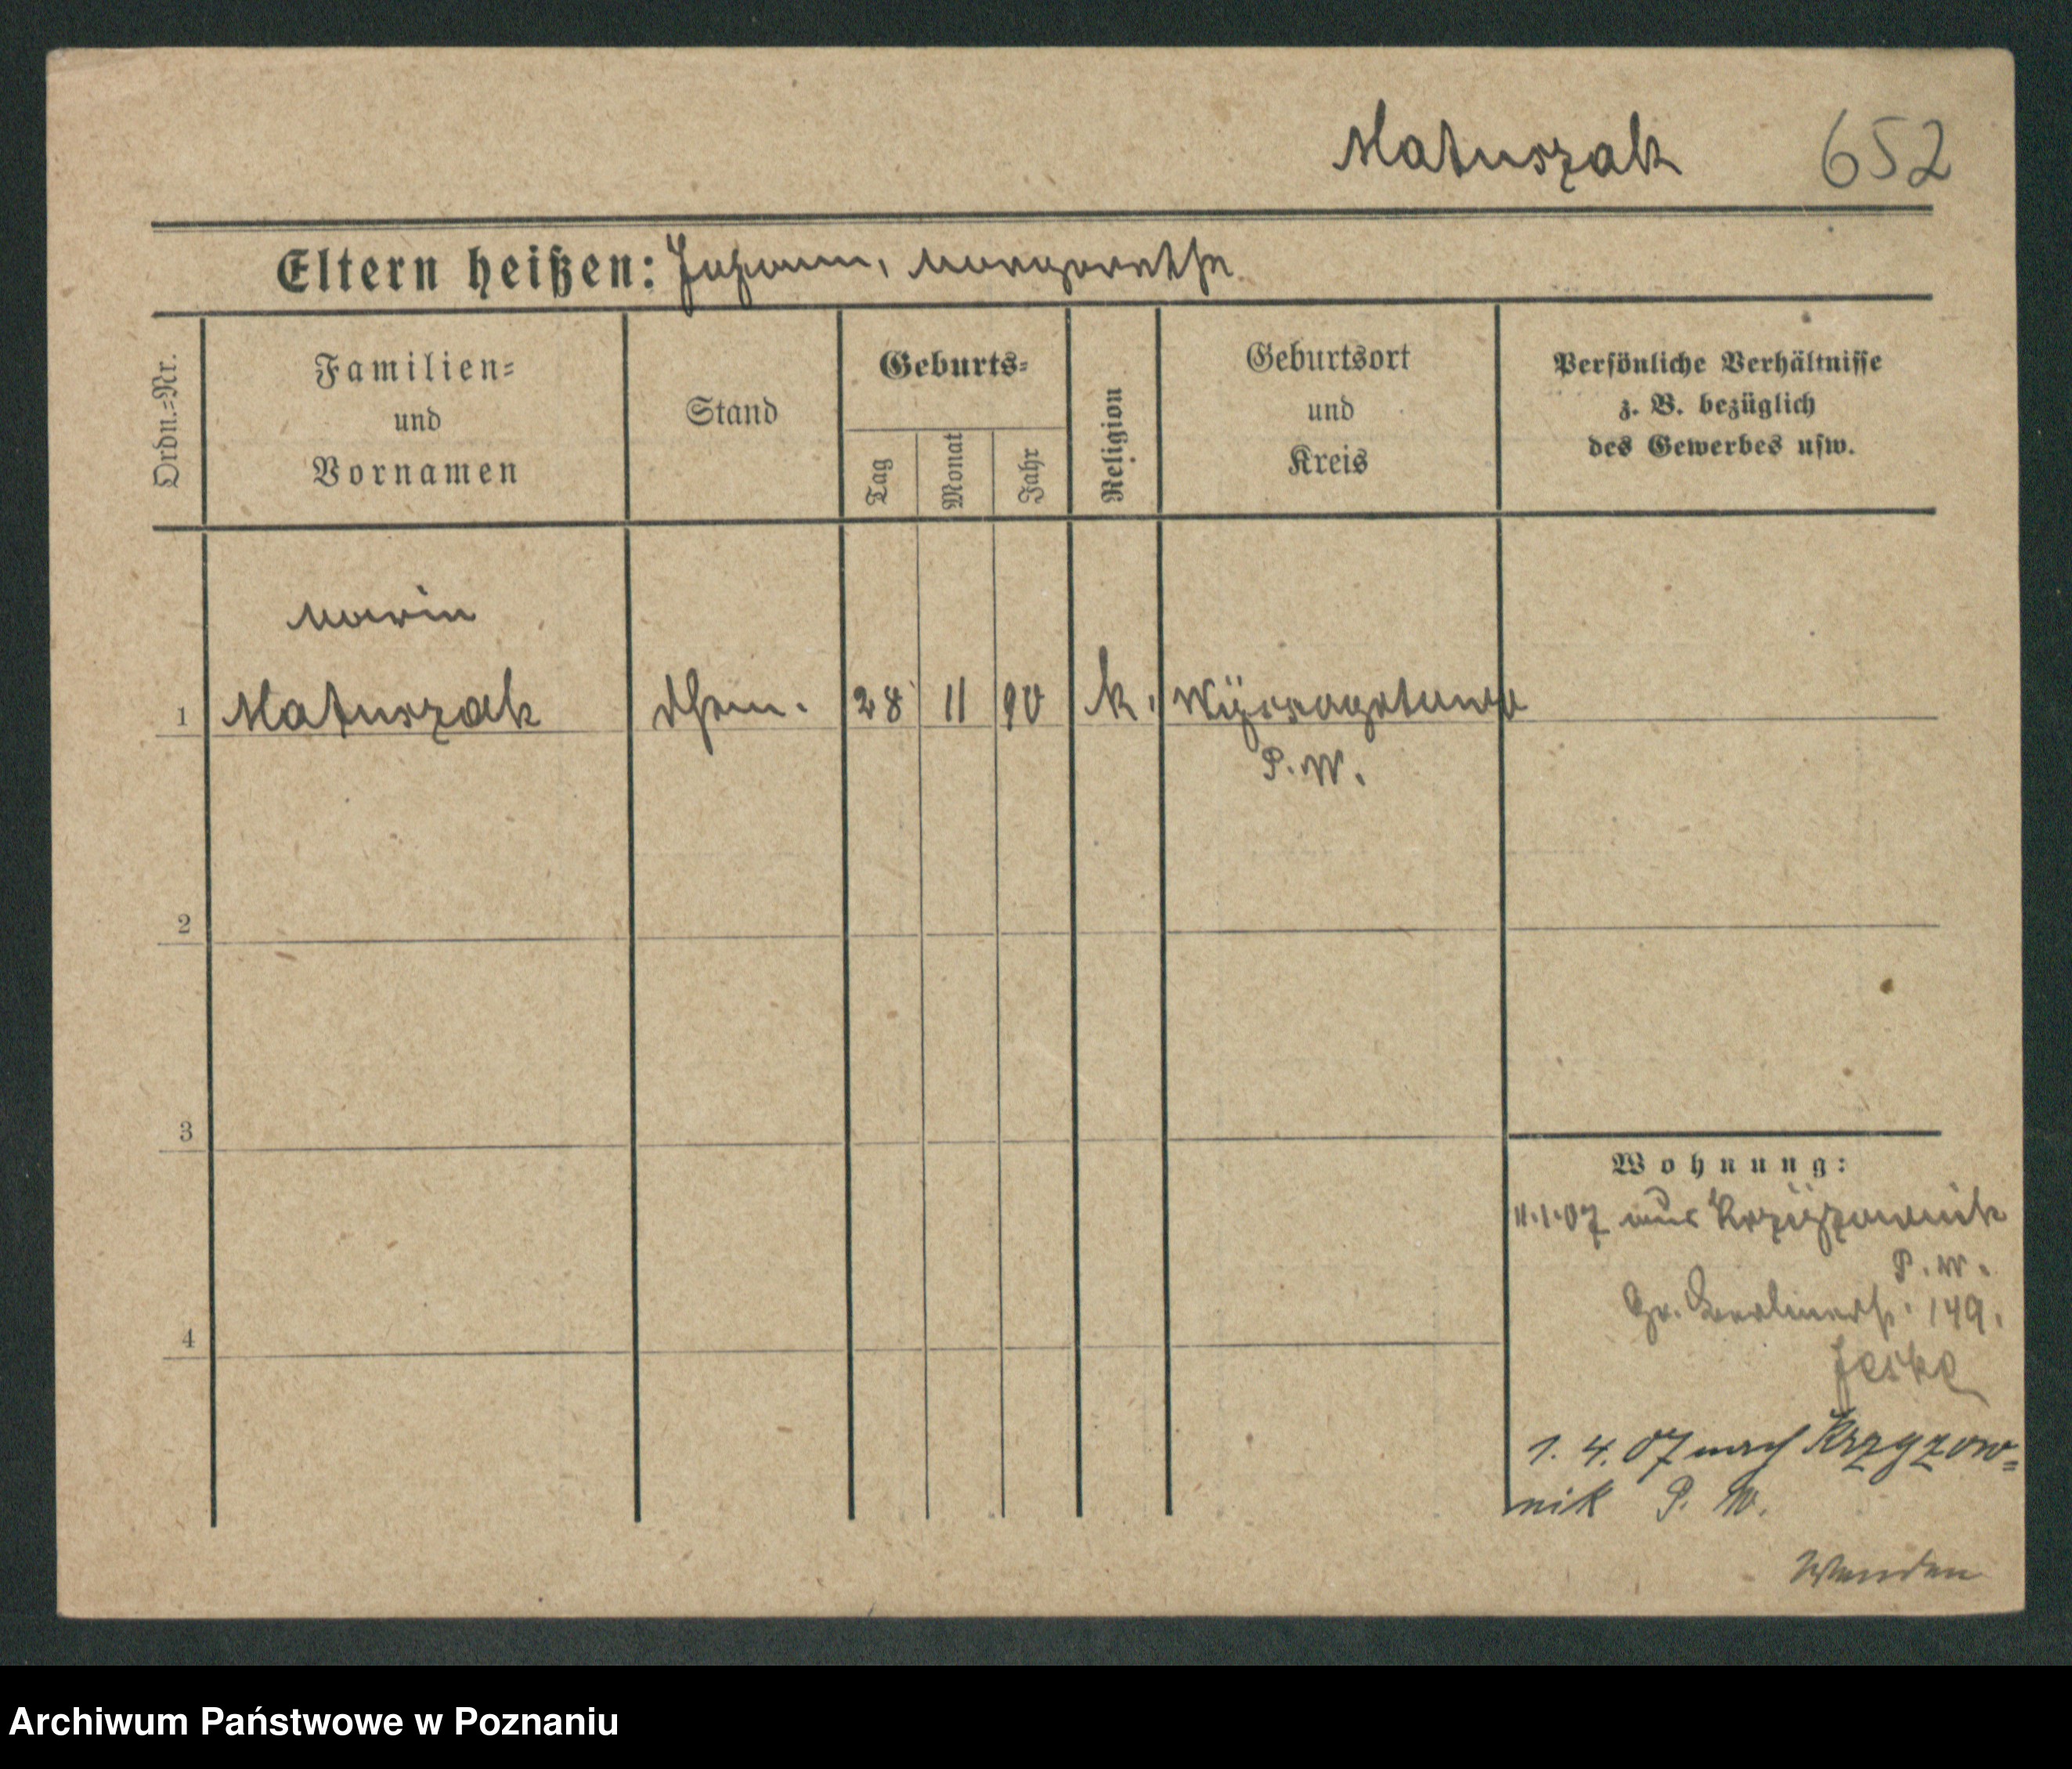 Matuszak 652
Eltern heißen: Johann, Margarethe
Ordn.=Nr.
Familien=
und
Vornamen
Stand
Geburts=
Tag
Monat
Jahr
Religion
Geburtsort
und
Kreis
Persönliche Verhältnisse
z. B. bezüglich
des Gewerbes usw.
Marie
1 Matuszak 28 11 90 k.
P. W.
2
3
4
Wohnung:
11.1.07 aus Krzyżownik
P. W.
Gr. Berlinerst. 149.
Jeske
1. 4. 07 nach Krzyzow=
nik P. W.
Wenden
Archiwum Państwowe w Poznaniu